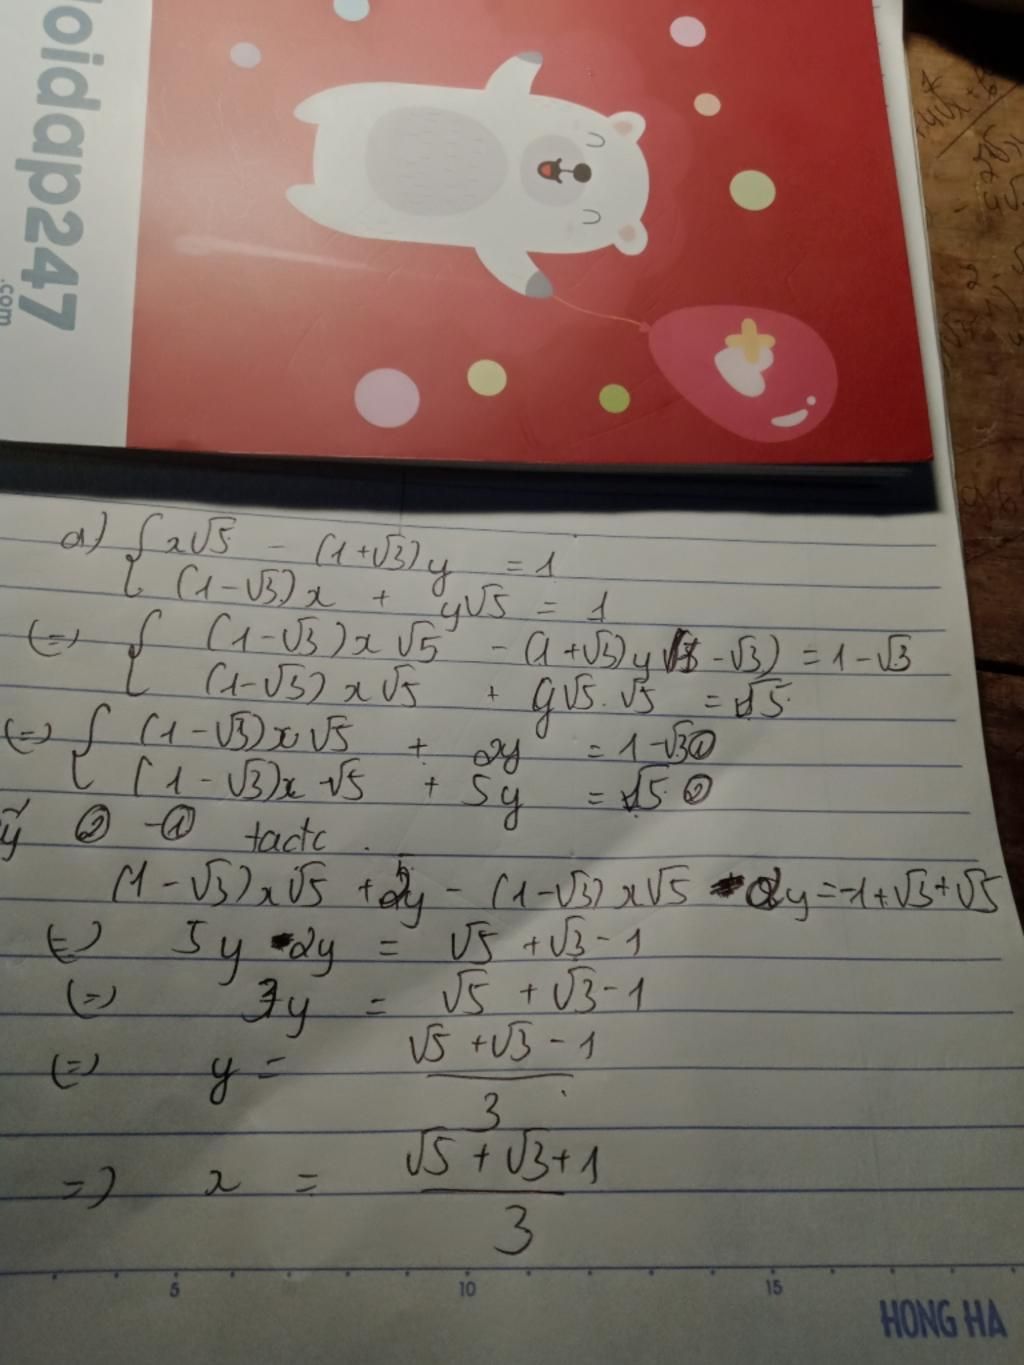 loidap247
.com
a) { x√5 - (1+√3)y = 1
(1-√3)x + y√5 = 1
(=) { (1-√3)x√5 - (1+√3)y(1-√3) = 1-√3
(1-√3)x√5 + y√5.√5 = √5
(=) { (1-√3)x√5 + 2y = 1-√3 ①
(1-√3)x√5 + 5y = √5 ②
② - ① tactc
(1-√3)x√5 + 5y - (1-√3)x√5 - 2y = -1+√3+√5
(=) 5y - 2y = √5 + √3 - 1
(=) 3y = √5 + √3 - 1
(=) y = √5 + √3 - 1
3
=) x = √5 + √3 + 1
3
5 10 15
HONG HA